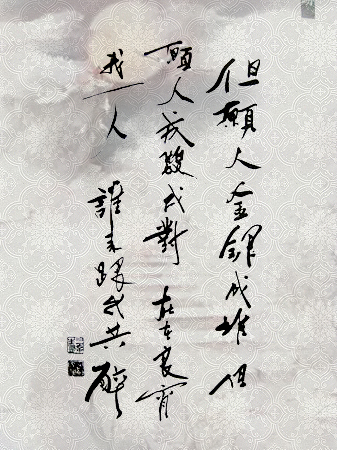 但願人金銀成堆但
願人成雙成對在良宵
我一人誰未跟我共醉